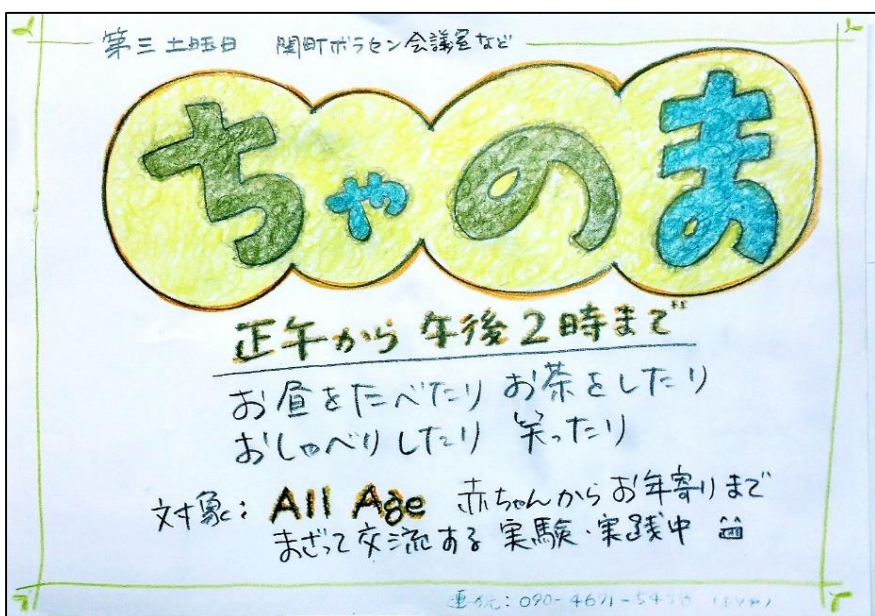 第三土曜日 関町ボラセン会議室など
ちゃのま
正午から午後2時まで
お昼をたべたり お茶をしたり
おしゃべりしたり 笑ったり
対象: All Age 赤ちゃんからお年寄りまで
まざって交流する 実験・実践中
連絡先: 090-4671-